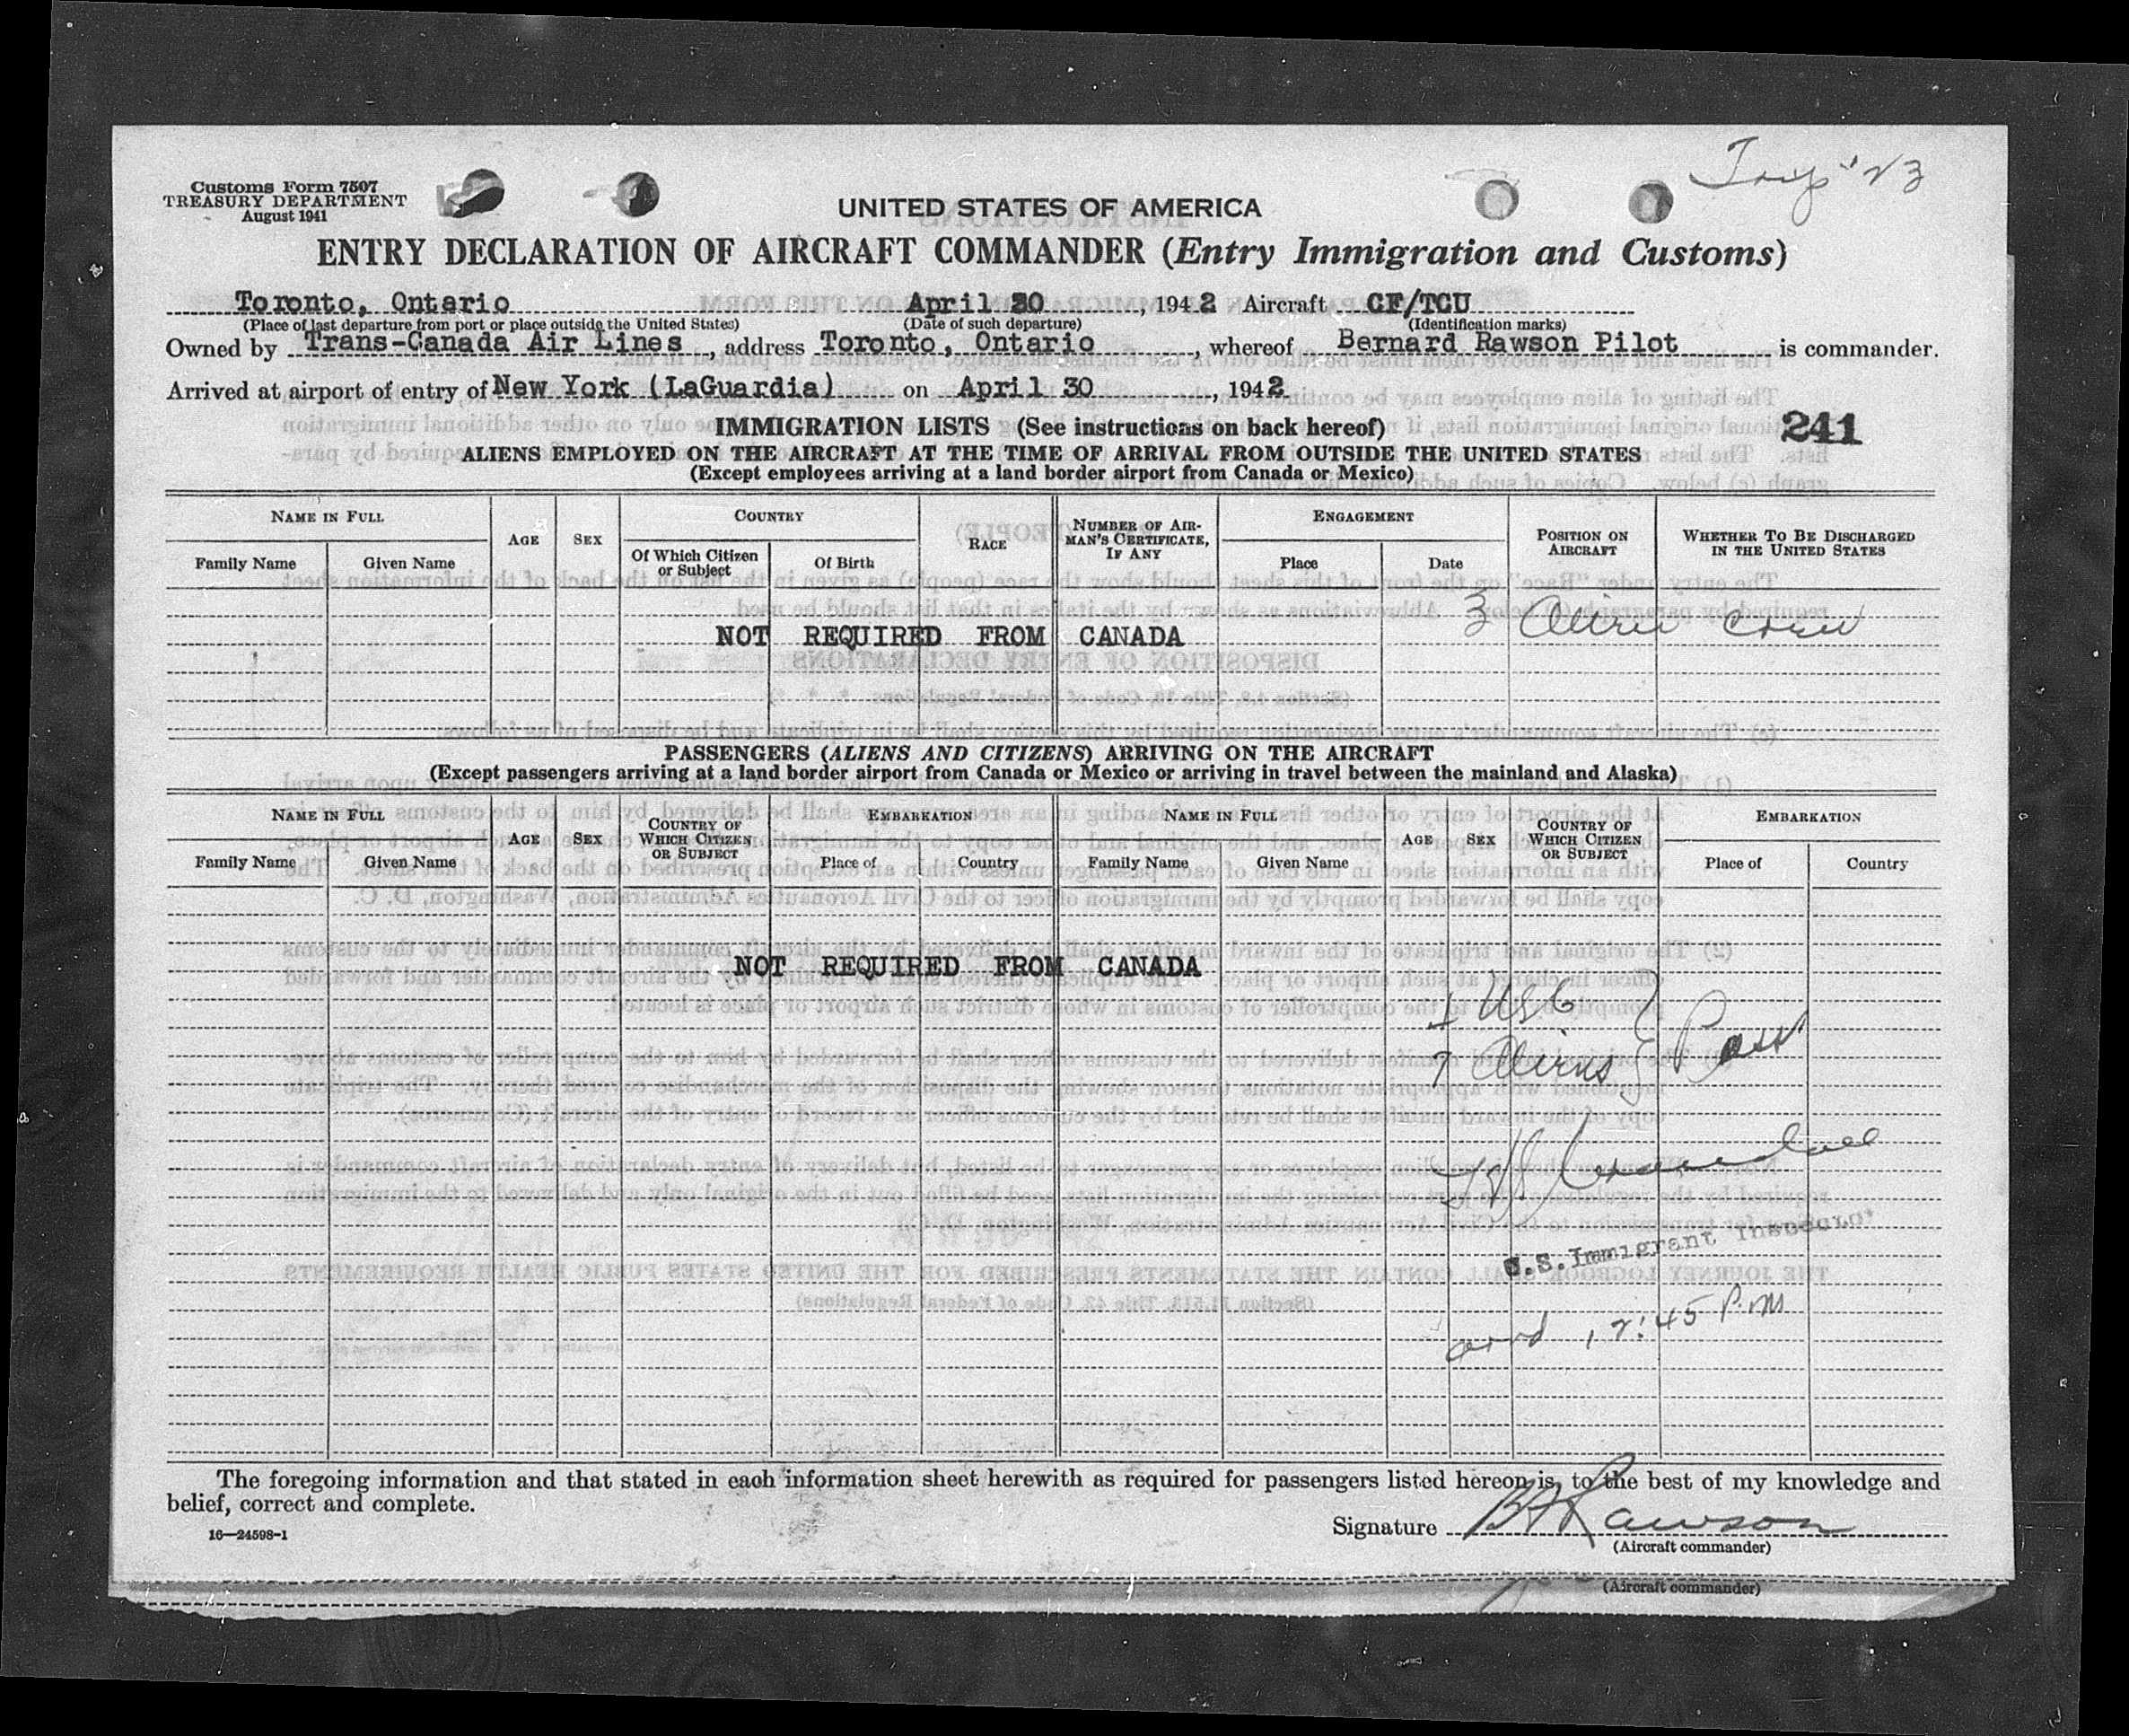 Customs Form 7507
TREASURY DEPARTMENT
August 1941
UNITED STATES OF AMERICA
ENTRY DECLARATION OF AIRCRAFT COMMANDER (Entry Immigration and Customs)
Toronto, Ontario April 30, 1942 Aircraft CF/TCU
(Place of last departure from port or place outside the United States) (Date of such departure) (Identification marks)
Owned by Trans-Canada Air Lines, address Toronto, Ontario, whereof Bernard Rawson Pilot is commander.
Arrived at airport of entry of New York (LaGuardia) on April 30, 1942
IMMIGRATION LISTS (See instructions on back hereof)
241
ALIENS EMPLOYED ON THE AIRCRAFT AT THE TIME OF ARRIVAL FROM OUTSIDE THE UNITED STATES
(Except employees arriving at a land border airport from Canada or Mexico)
NAME IN FULL AGE SEX COUNTRY RACE NUMBER OF AIRMAN'S CERTIFICATE, IF ANY ENGAGEMENT POSITION ON AIRCRAFT WHETHER TO BE DISCHARGED IN THE UNITED STATES
Family Name Given Name Of Which Citizen or Subject Of Birth Place Date
3 Alien Crew
NOT REQUIRED FROM CANADA
PASSENGERS (ALIENS AND CITIZENS) ARRIVING ON THE AIRCRAFT
(Except passengers arriving at a land border airport from Canada or Mexico or arriving in travel between the mainland and Alaska)
NAME IN FULL AGE SEX COUNTRY OF WHICH CITIZEN OR SUBJECT EMBARKATION NAME IN FULL AGE SEX COUNTRY OF WHICH CITIZEN OR SUBJECT EMBARKATION
Family Name Given Name Place of Country Family Name Given Name Place of Country
NOT REQUIRED FROM CANADA
1 USC
7 Aliens } Pass
U.S. Immigrant Inspector
arrd 12:45 P.M
The foregoing information and that stated in each information sheet herewith as required for passengers listed hereon is, to the best of my knowledge and
belief, correct and complete.
16—24598-1
Signature B Rawson
(Aircraft commander)
(Aircraft commander)